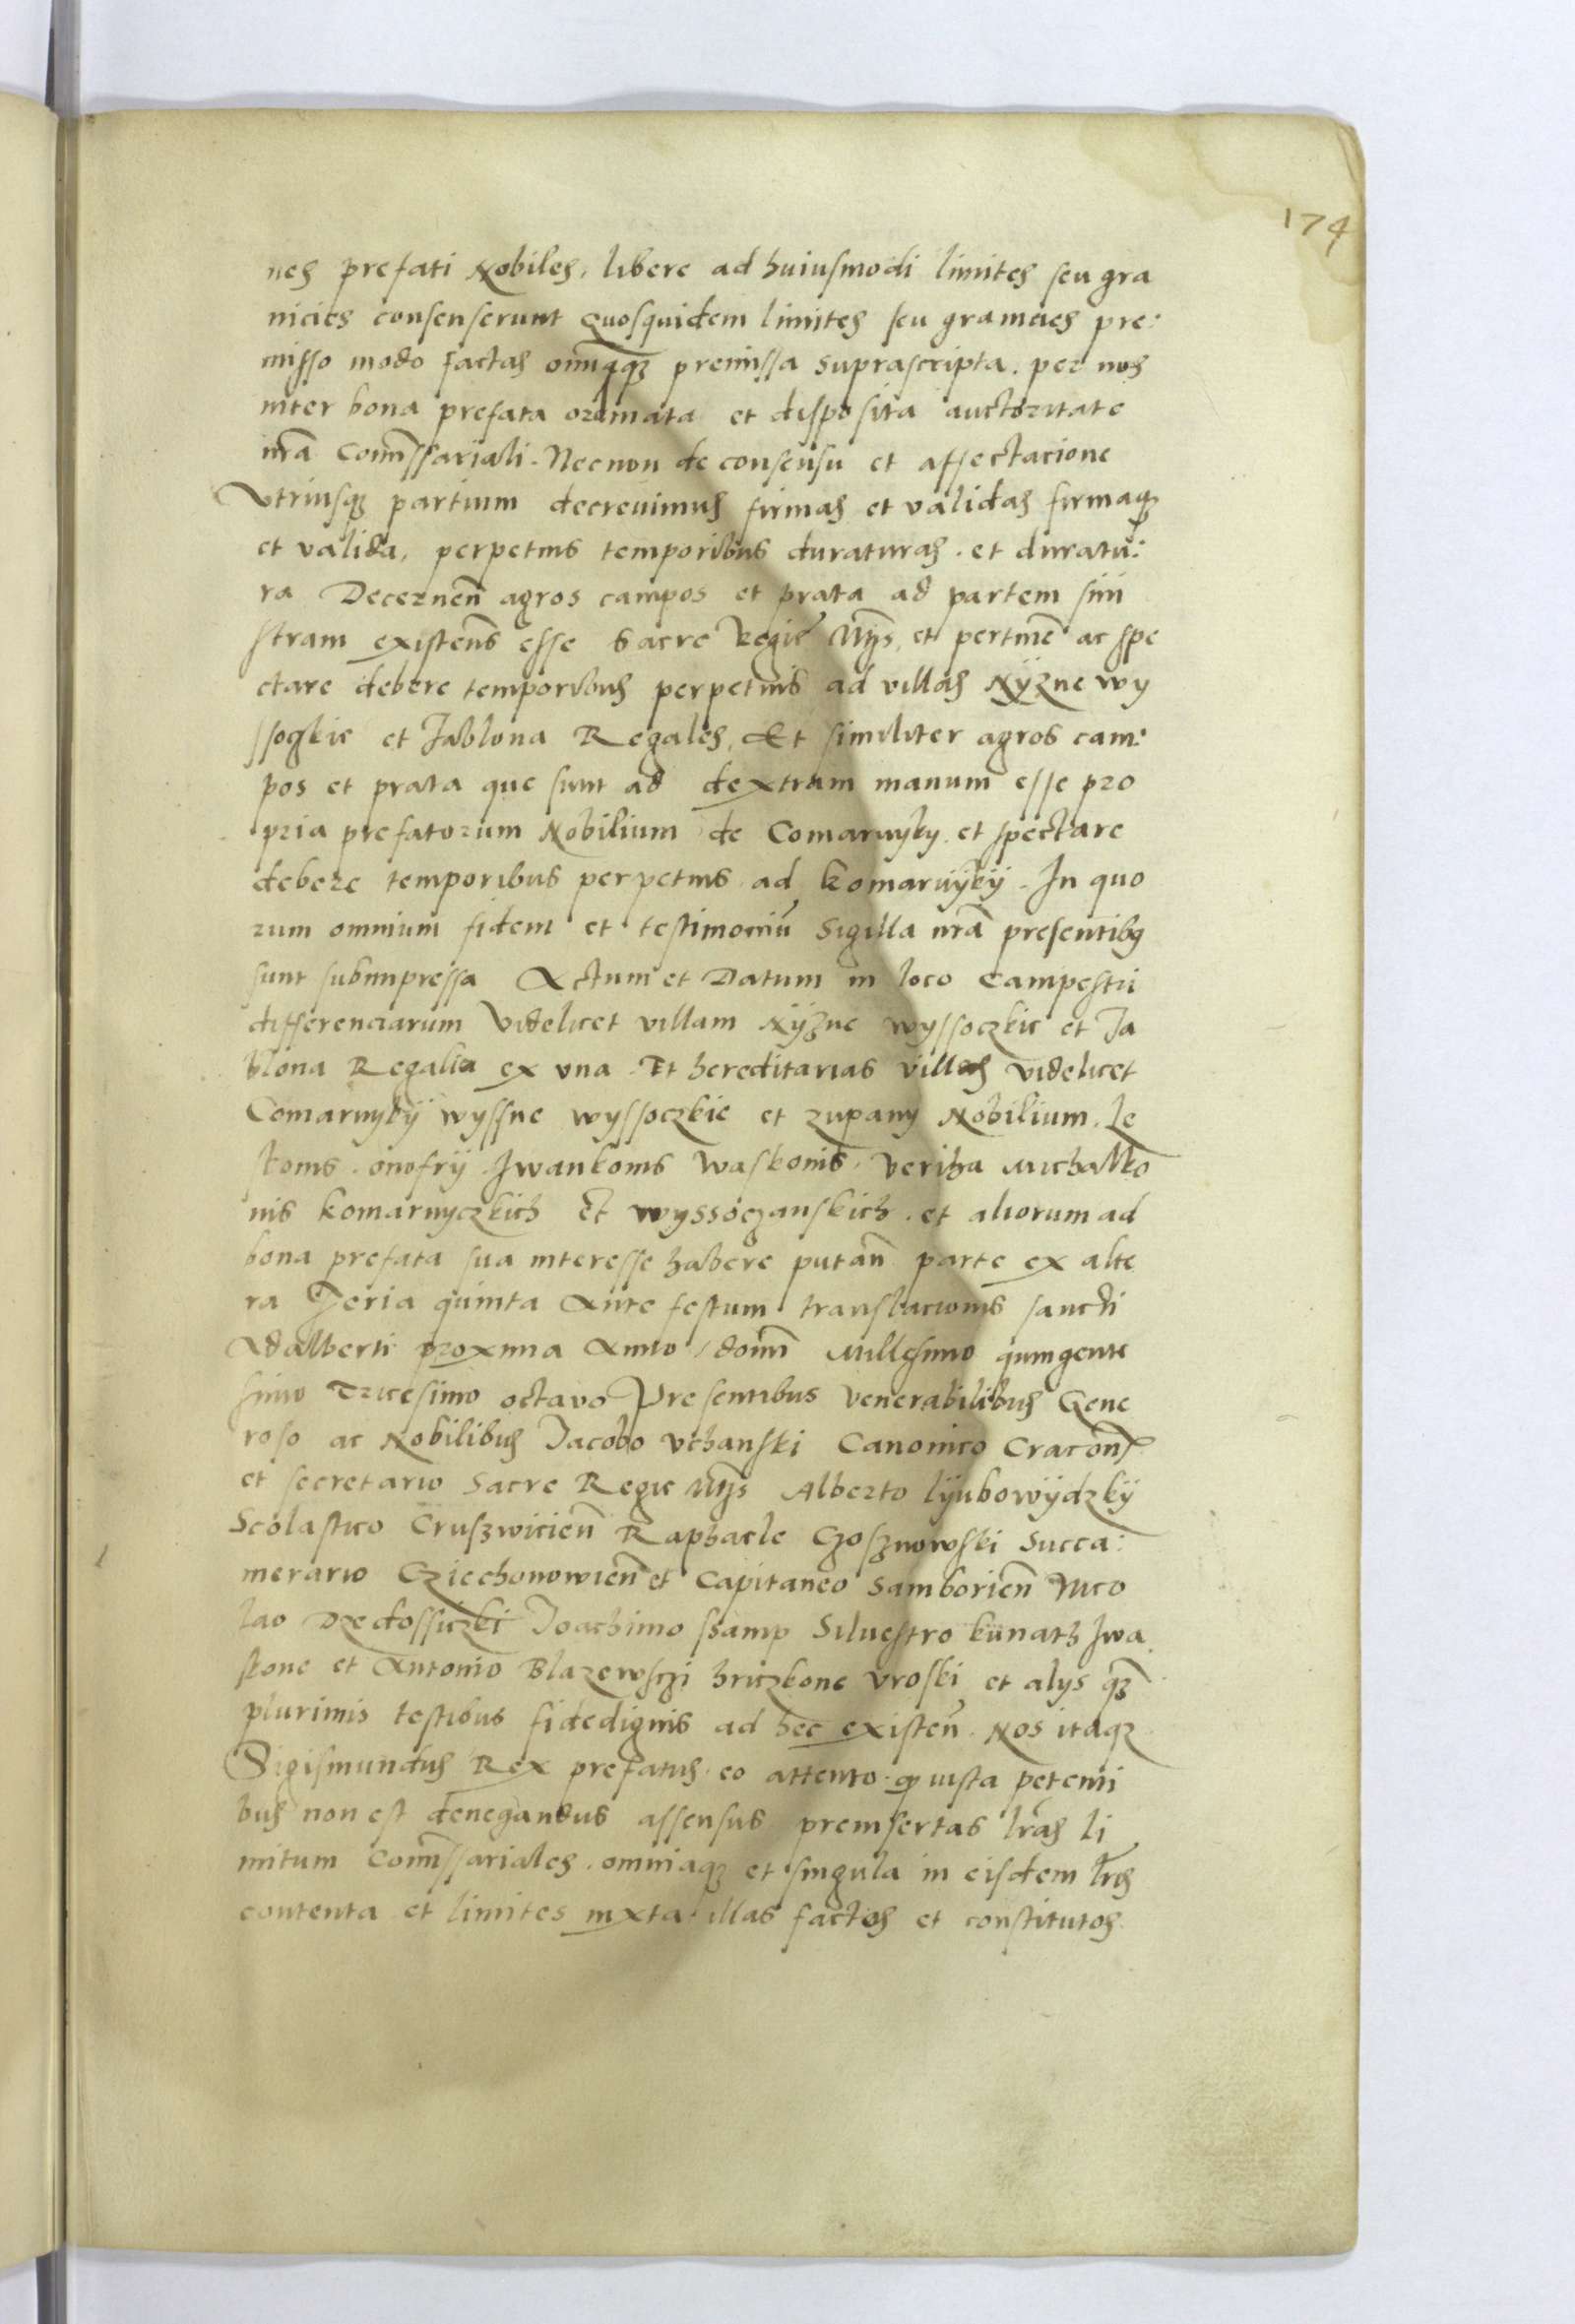 174
nes prefati Nobiles, libere ad huiusmodi limites seu gra
nicies consenserunt Quosquidem limites seu granicies pre:
misso modo factas om̃iaqꝫ premissa suprascripta. per nos
inter bona prefata ordinata et disposita auctoritate
nr̃a Com̃issariali. Necnon de consensu et affectacione
Vtriusqꝫ partium decrevimus firmas et validas firmaqꝫ
et valida, perpetuis temporibus duraturas. et duratu:
ra Decernen̄ agros campos et prata ad partem sini
stram existens̄ esse Sacre Regie Mt̃is, et pertinē ac spe
ctare debere temporibus perpetuis ad villas Nÿzne wy
ssoczkie et Jablona Regales, Et similiter agros cam:
pos et prata que sunt ad dextram manum esse pro
pria prefatorum Nobilium de Comarnyky et spectare
debere temporibus perpetuis ad Komarnÿkÿ. In quo
rum omnium fidem et testimoniū Sigilla nr̃a presentibꝯ
sunt subimpressa Actum et Datum in loco Campestri
differenciarum Videlicet villam Nÿzne wyssoczkie et Ja
blona Regalia ex vna Et hereditarias villas videlicet
Comarnykÿ wyssne wyssoczkie et zupany Nobilium. Je
konis. onofrÿ Jwankonis waskonis. veriha Michalko
nis Komarnyczkich et wyssoczanskich. et aliorum ad
bona prefata sua interesse habere putan̄ parte ex alte
ra Feria quinta Ante festum translacionis sancti
Adalberti proxima Anno domini Millesimo quingente
simo Tricesimo octavo Presentibus Venerabilibus Gene
roso ac Nobilibus Jacobo Vchanski Canonico Cracon̄
et secretario Sacre Regie Mt̃is Alberto lÿubowÿdzkÿ
Scolastico Cruszwicien̄ Raphaele Gzosznowski Succa:
merario Cziechonowien̄ et Capitaneo Samborien̄ Nico
lao Joachimo ssamp Siluestro kunath Jwa
skone et Antonio Blazewszi hriczkone vroski et alÿs qꝫ
plurimis testibus fidedignis ad hec existen̄. Nos itaqꝫ
Sigismundus Rex prefatus. eo attento. ꝙ iusta petenti
bus non est denegandus assensus preinsertas lr̃as li
mitum Com̃issariales. omniaqꝫ et singula in eisdem lr̃is
contenta et limites iuxta illas factos et constitutos